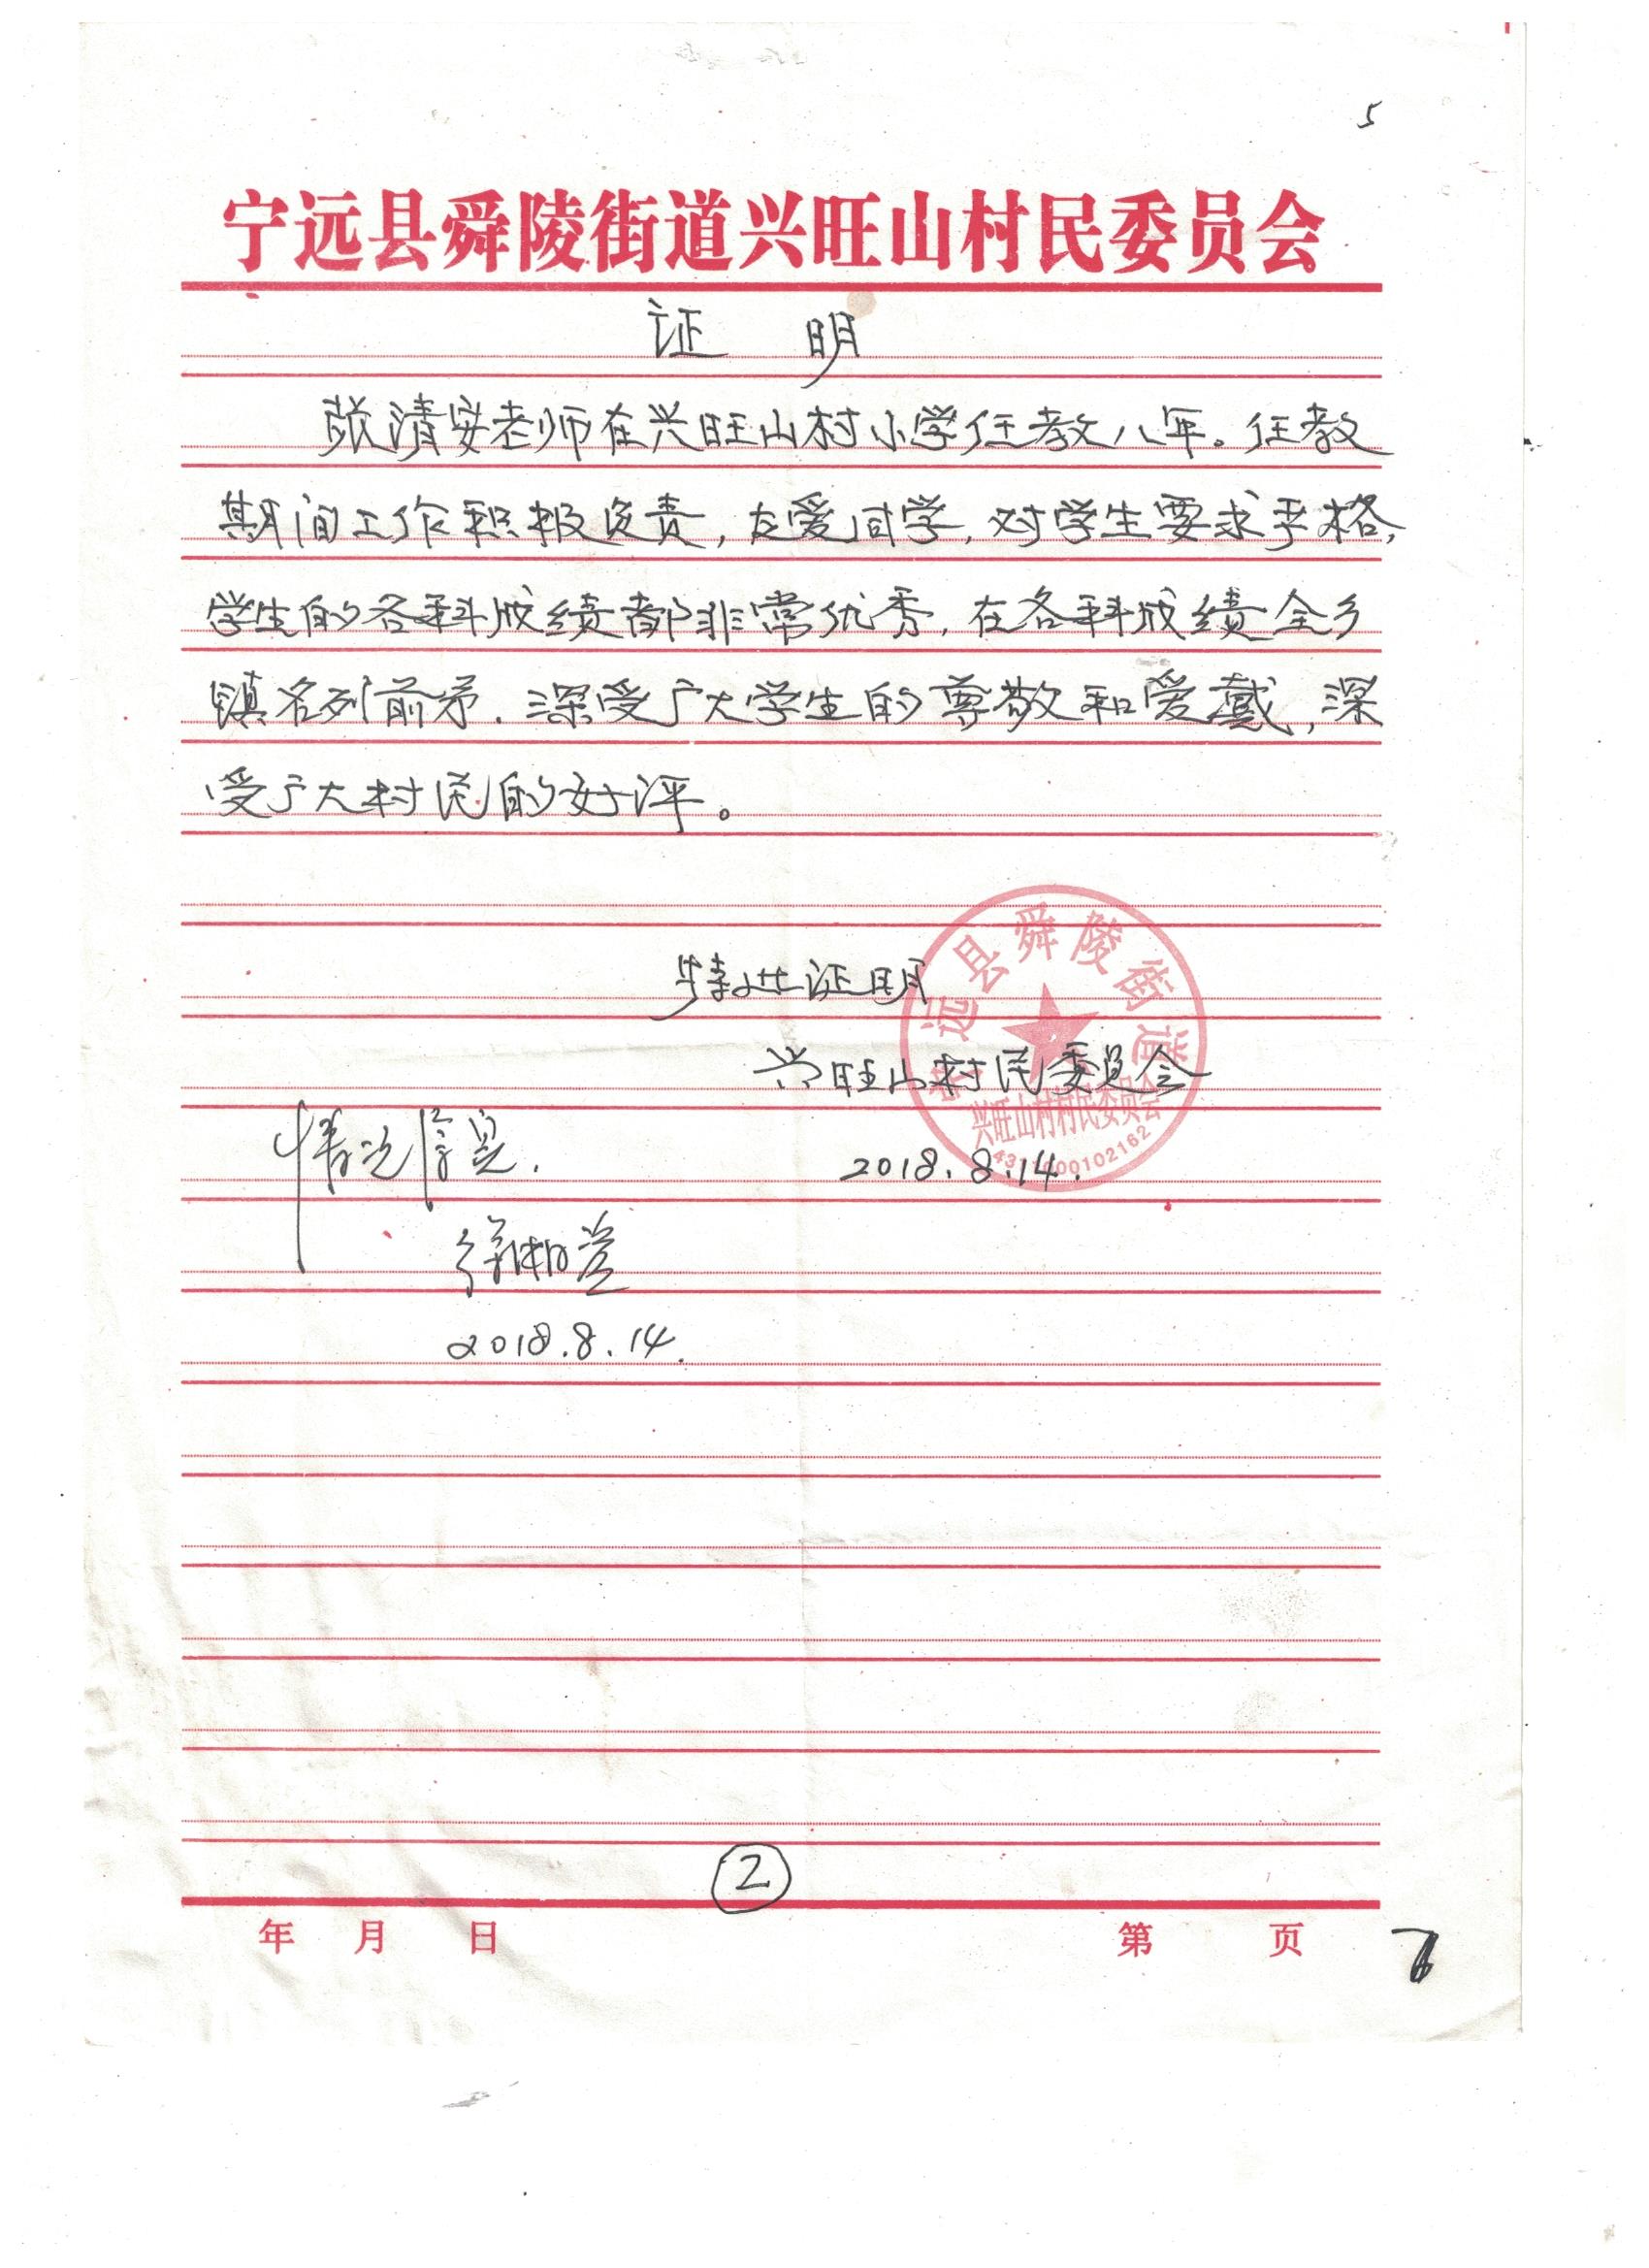 5
宁远县舜陵街道兴旺山村民委员会
证 明
张清安老师在兴旺山村小学任教八年。任教
期间工作积极负责,友爱同学,对学生要求严格,
学生的各科成绩都非常优秀,在各科成绩全乡
镇名列前茅.深受广大学生的尊敬和爱戴,深
受广大村民的好评。
特此证明
兴旺山村民委员会
2018.8.14.
远县舜陵街道
兴旺山村村民委员会
情况属实.
2018.8.14.
2
年 月 日
第 页